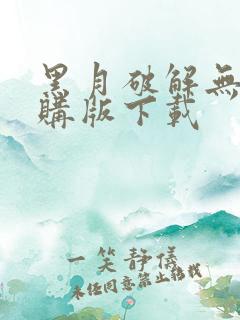 黑月破解無
購版下載
一笑靜儀
未经同意禁止转载